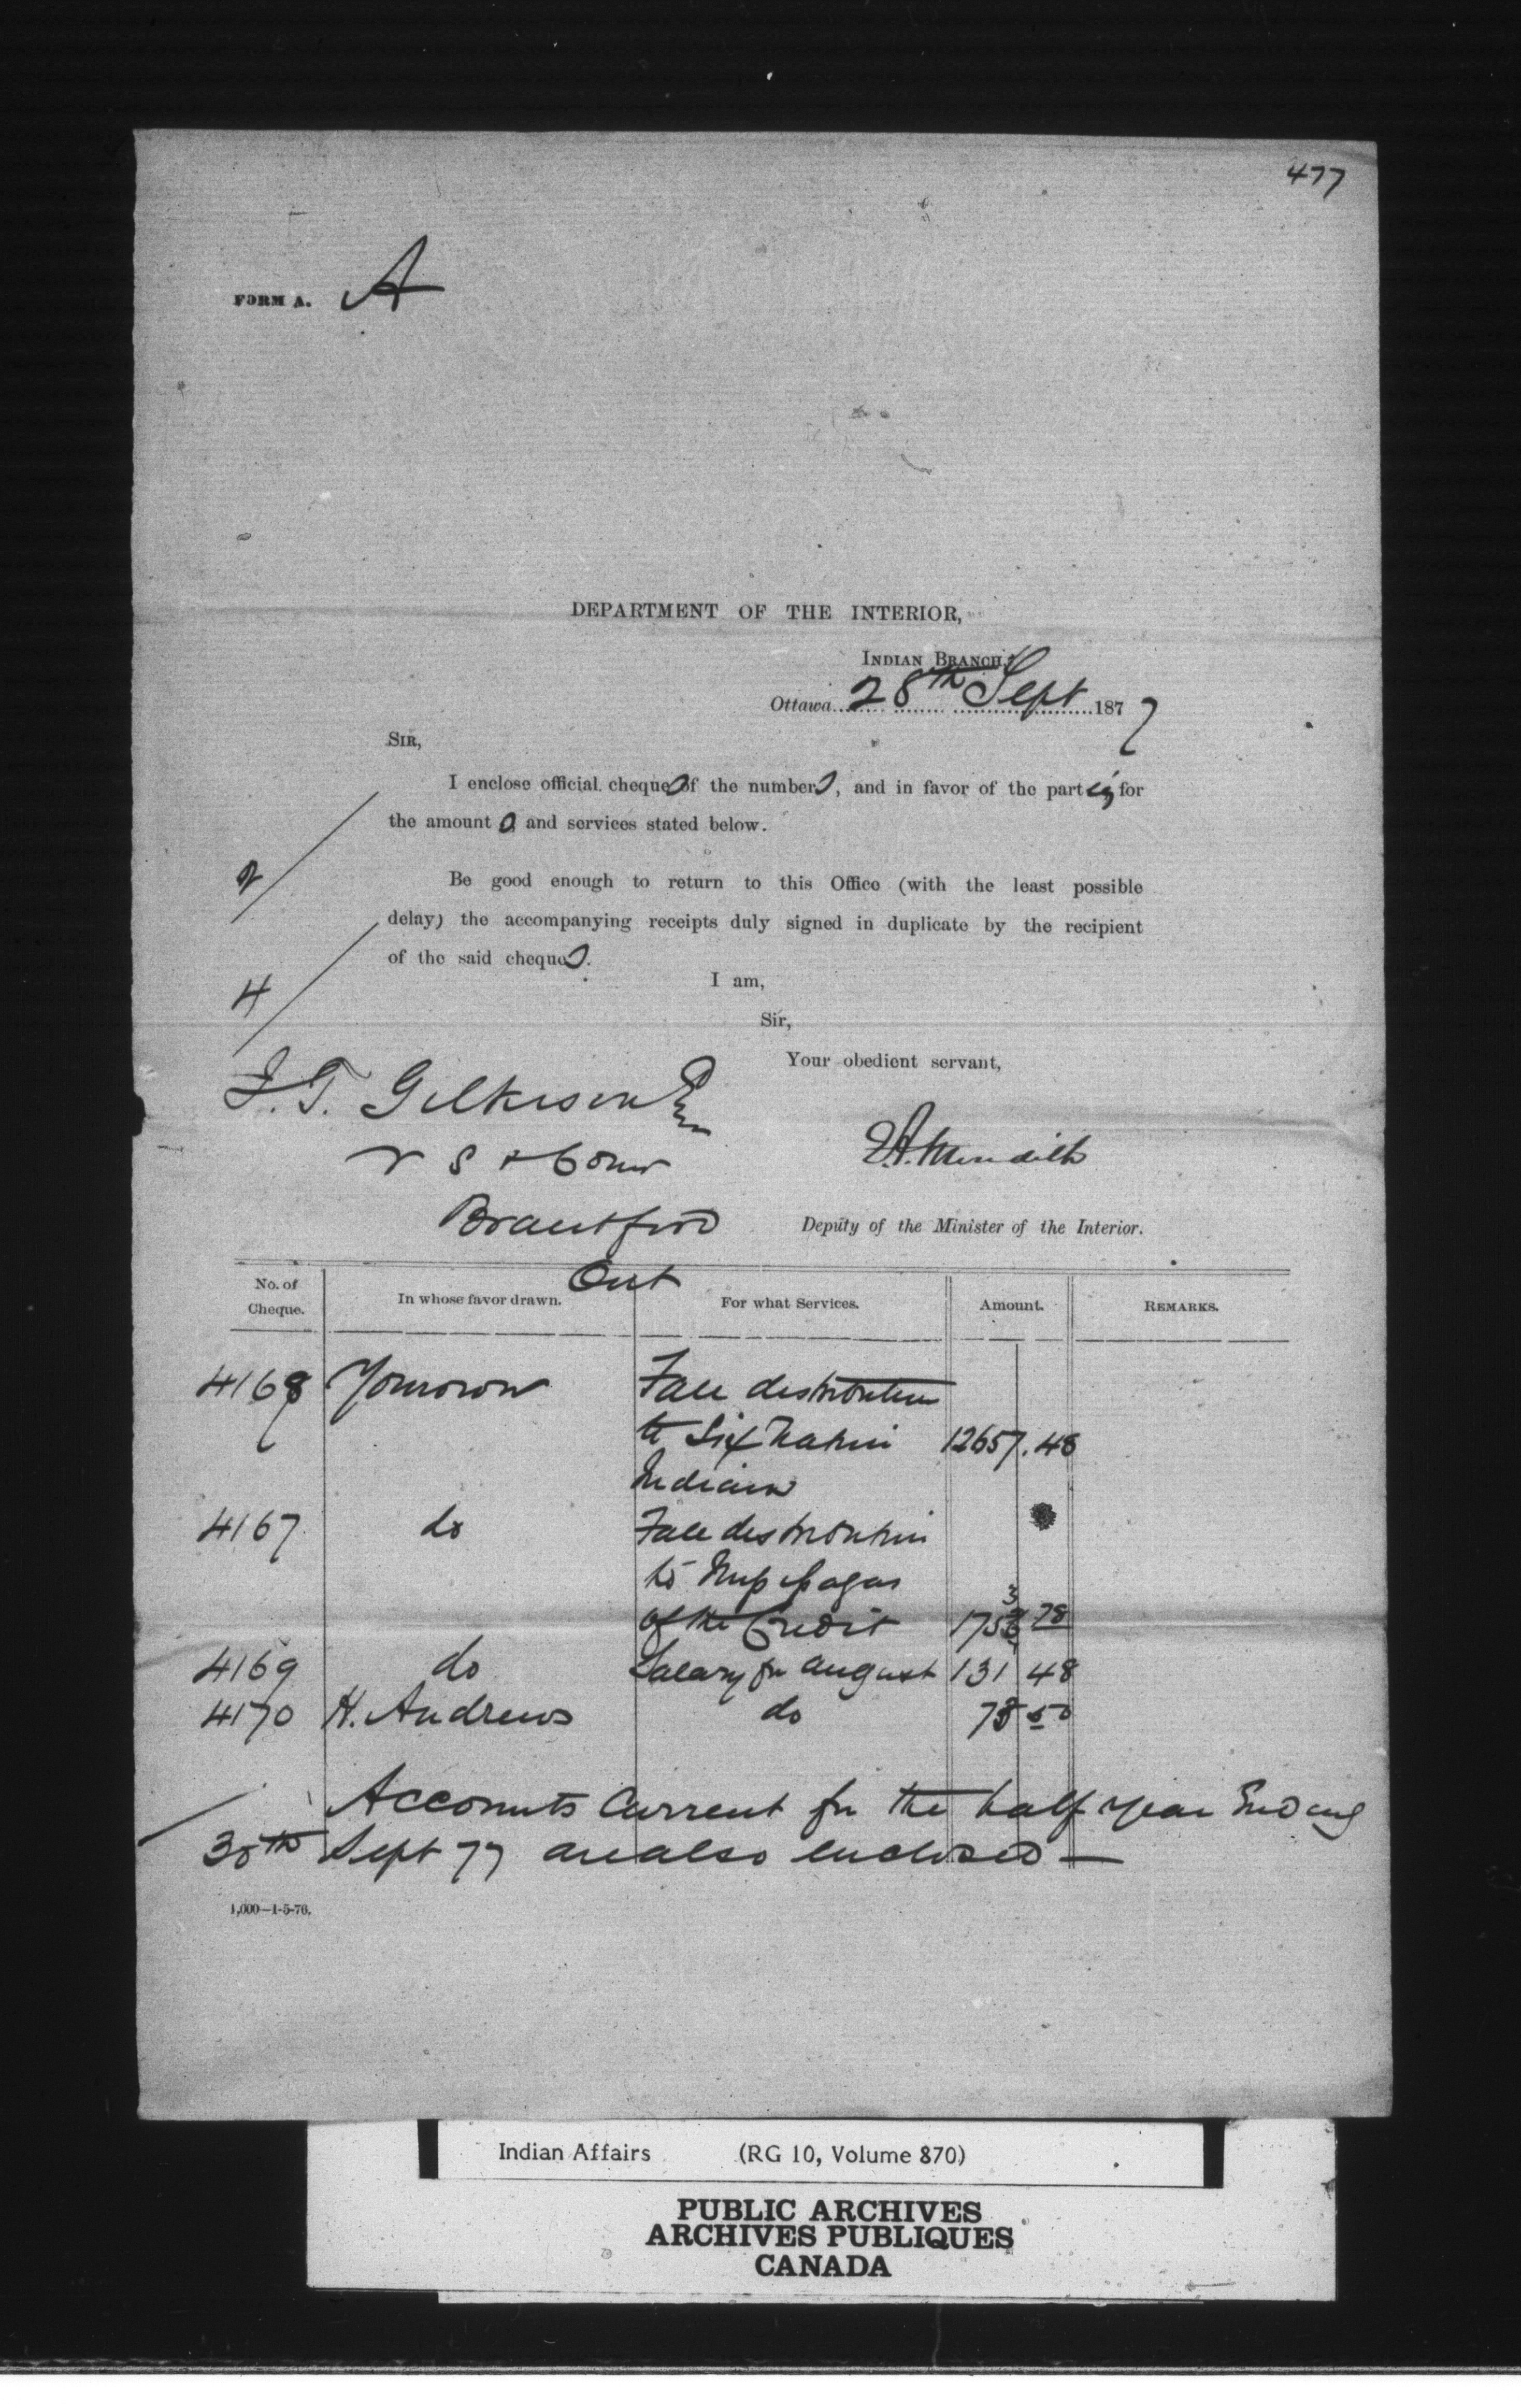 477
FORM A. A
DEPARTMENT OF THE INTERIOR,
INDIAN BRANCH,
Ottawa 28th Sept 1877
SIR,
I enclose official cheques of the numbers, and in favor of the parties for
the amounts and services stated below.
2/
Be good enough to return to this Office (with the least possible
delay) the accompanying receipts duly signed in duplicate by the recipient
of the said cheques.
4/
I am,
Sir,
Your obedient servant,
J. T. Gilkison Esq
V S & Comr
Brantford
Ont
E.A. Meredith
Deputy of the Minister of the Interior.
No. of Cheque. In whose favor drawn. For what Services. Amount. REMARKS.
4168 Yourown Fall distribution
to Six Nation 12657.48
Indians
4167 do Fall distribution
to Mississagas
of the Credit 1753 78
4169 do Salary for August 131 48
4170 H. Andrews do 78 50
Accounts Current for the half year Ending
30th Sept 77 are also enclosed —
1,000—1-5-76.
Indian Affairs (RG 10, Volume 870)
PUBLIC ARCHIVES
ARCHIVES PUBLIQUES
CANADA